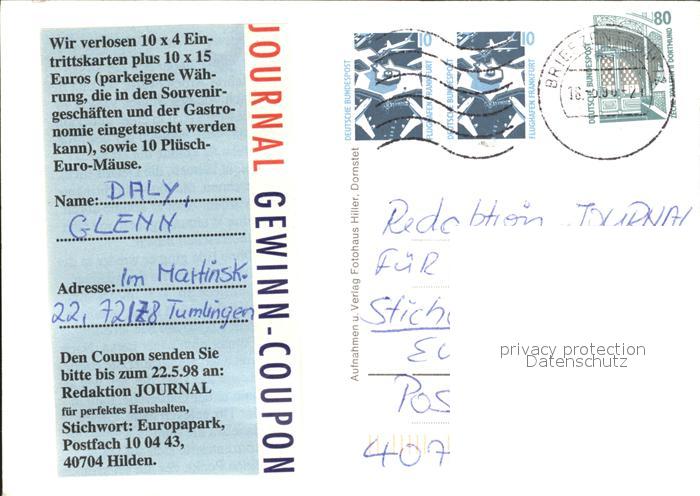 Wir verlosen 10 x 4 Ein-
trittskarten plus 10 x 15
Euros (parkeigene Wäh-
rung, die in den Souvenir-
geschäften und der Gastro-
nomie eingetauscht werden
kann), sowie 10 Plüsch-
Euro-Mäuse.
Name: DALY,
GLENN
Adresse: Im Martinsk.
22, 72178 Tumlingen
Den Coupon senden Sie
bitte bis zum 22.5.98 an:
Redaktion JOURNAL
für perfektes Haushalten,
Stichwort: Europapark,
Postfach 10 04 43,
40704 Hilden.
JOURNAL GEWINN-COUPON
Aufnahmen u. Verlag Fotohaus Hiller, Dornstet
DEUTSCHE BUNDESPOST
10
FLUGHAFEN FRANKFURT
DEUTSCHE BUNDESPOST
10
FLUGHAFEN FRANKFURT
80
DEUTSCHE BUNDESPOST
DORTMUND
Redaktion JOURNAL
FÜR
Stich
Eu
Pos
407
privacy protection
Datenschutz